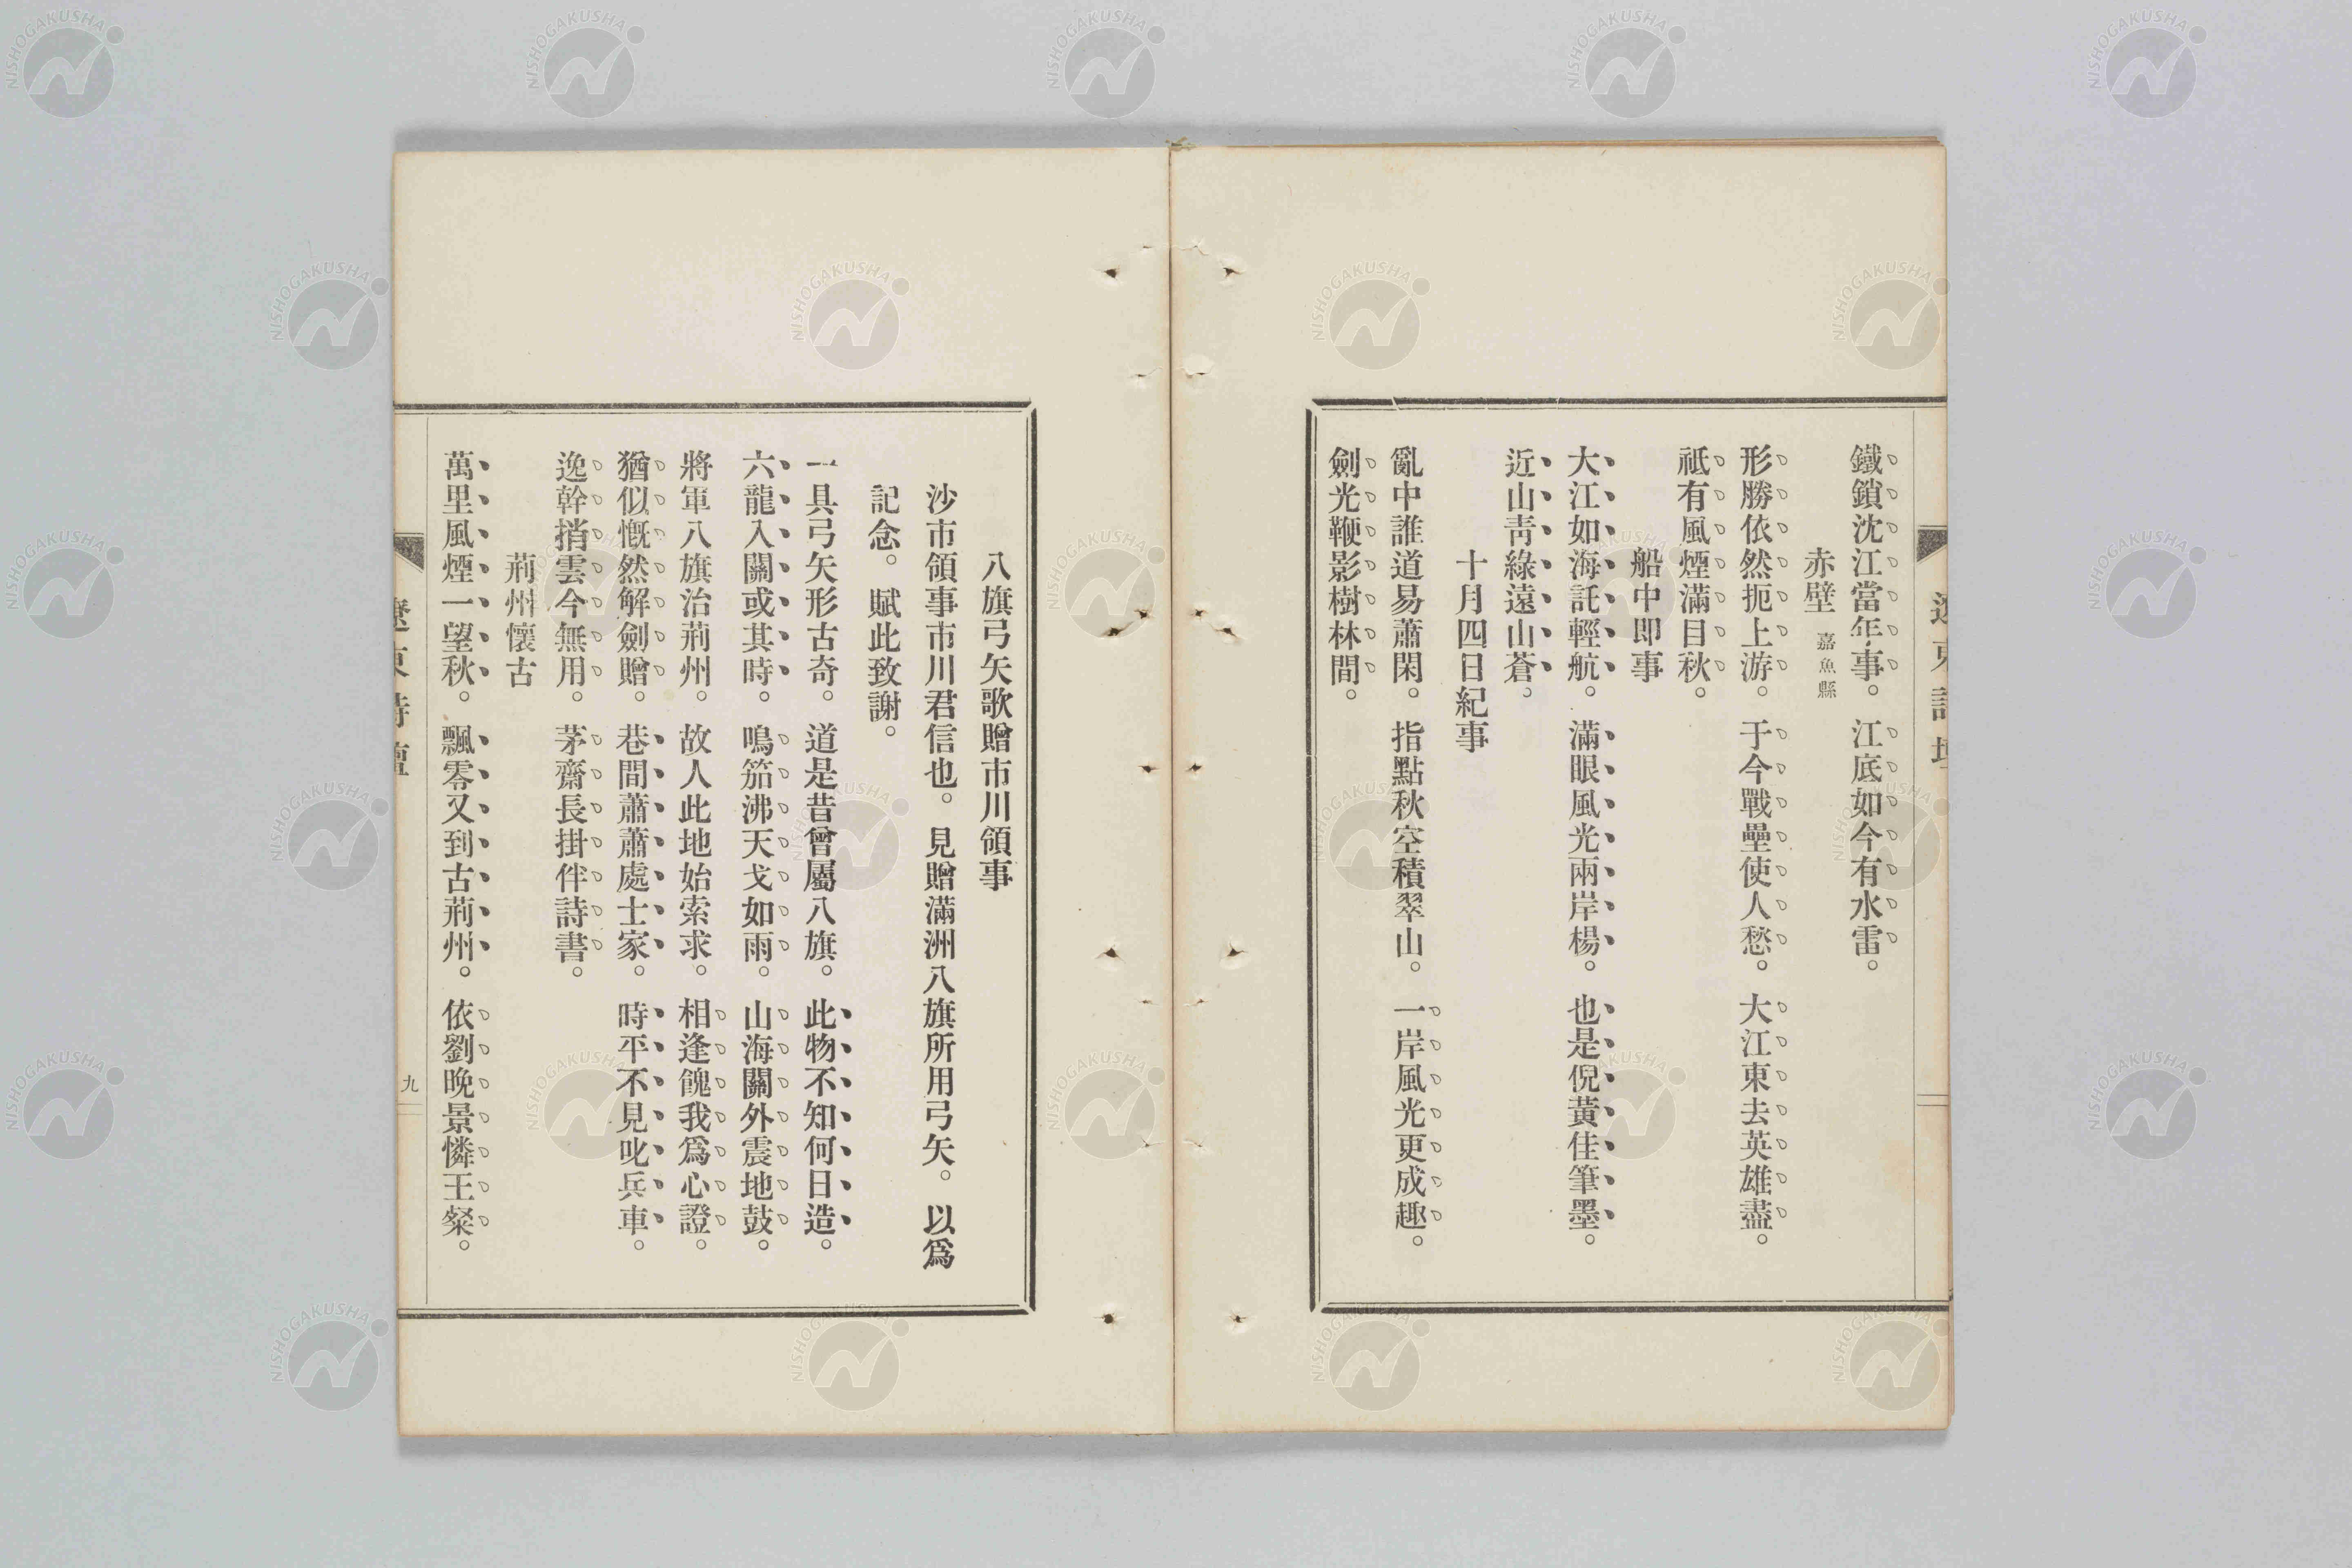 鐵鎖沈江當年事。江底如今有水雷。
赤壁 嘉魚縣
形勝依然扼上游。于今戰壘使人愁。大江東去英雄盡。
祇有風煙滿目秋。
船中即事
大江如海託輕航。滿眼風光兩岸楊。也是倪黃佳筆墨。
近山靑綠遠山蒼。
十月四日紀事
亂中誰道易蕭閑。指點秋空積翠山。一岸風光更成趣。
劍光鞭影樹林間。
八旗弓矢歌贈市川領事
沙市領事市川君信也。見贈滿洲八旗所用弓矢。以爲
記念。賦此致謝。
一具弓矢形古奇。道是昔曾屬八旗。此物不知何日造。
六龍入關或其時。鳴笳沸天戈如雨。山海關外震地鼓。
將軍八旗治荊州。故人此地始索求。相逢餽我爲心證。
猶似慨然解劍贈。巷間蕭蕭處士家。時平不見叱兵車。
逸幹捎雲今無用。茅齋長掛伴詩書。
荊州懷古
萬里風煙一望秋。飄零又到古荊州。依劉晚景憐王粲。
遼東詩壇
九
NISHOGAKUSHA